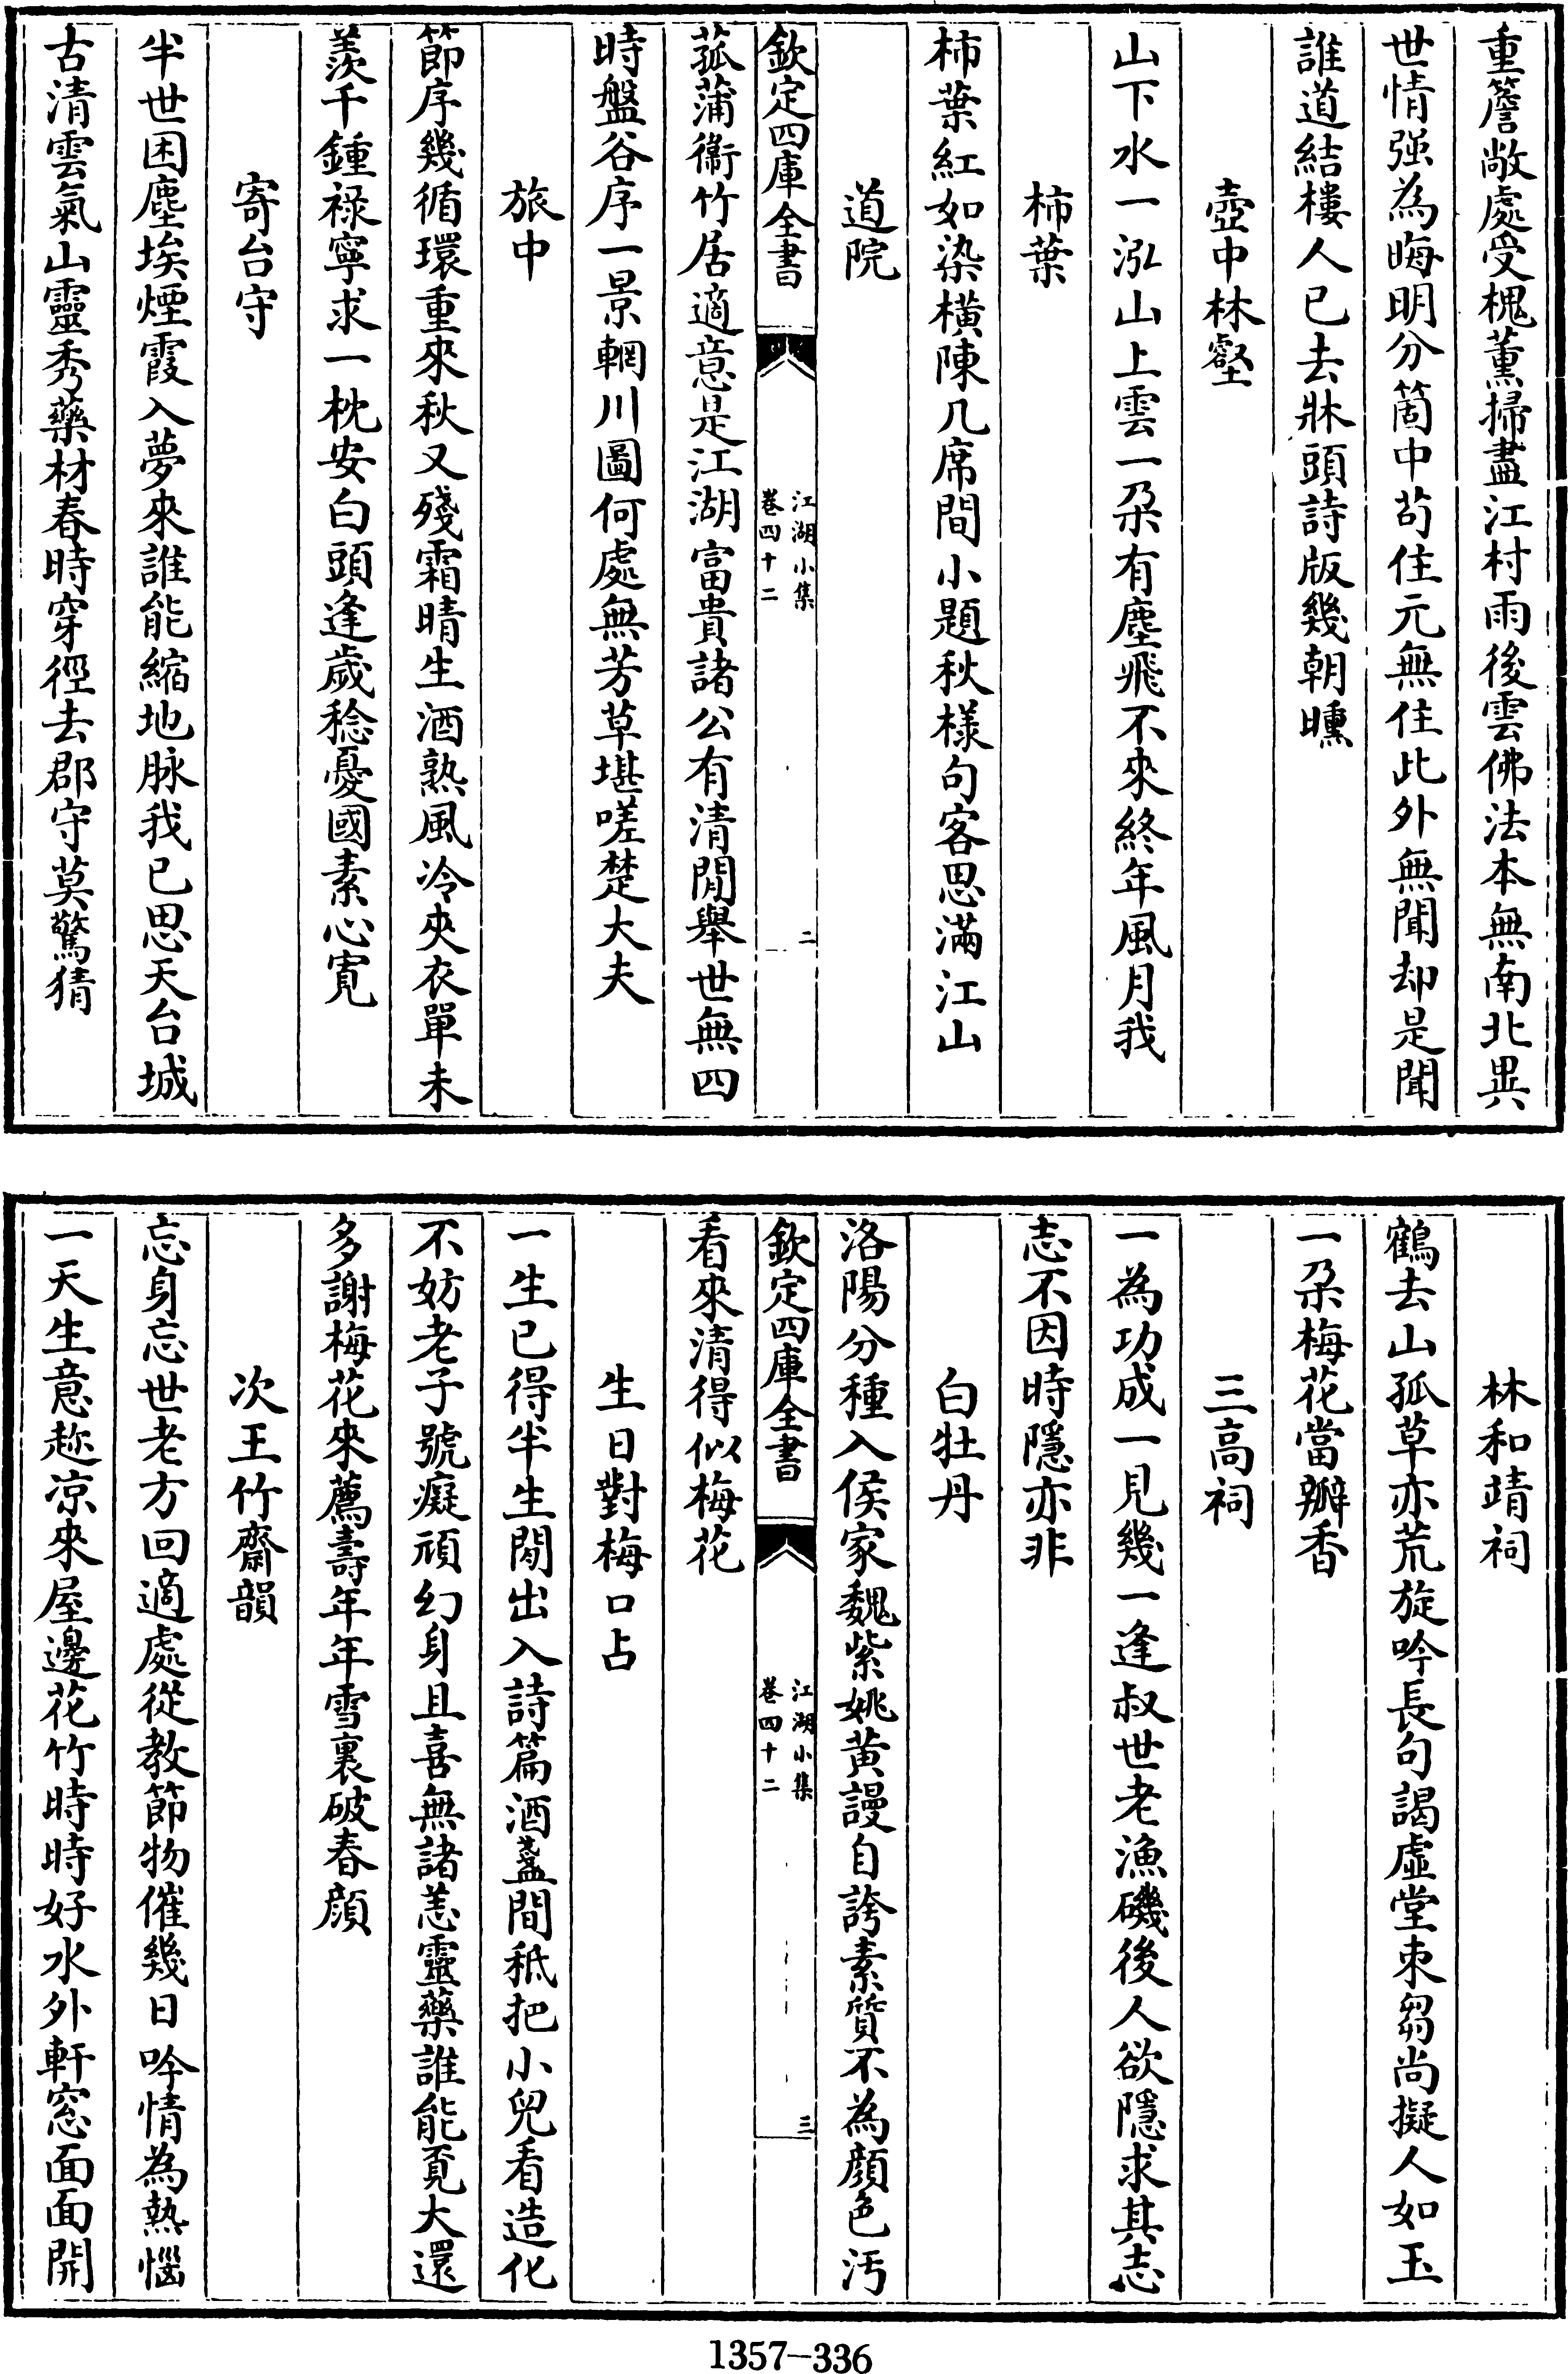 重簷敞處受槐薰掃盡江村雨後雲佛法本無南北異
世情强為晦明分箇中茍住元無住此外無聞却是聞
誰道結樓人已去牀頭詩版幾朝曛
壺中林壑
山下水一泓山上雲一朶有塵飛不來終年風月我
柿葉
柿葉紅如染橫陳几席間小題秋樣句客思滿江山
道院
欽定四庫全書
江湖小集
卷四十二
二
菰蒲衞竹居適意是江湖富貴諸公有清閒舉世無四
時盤谷序一景輞川圖何處無芳草堪嗟楚大夫
旅中
節序幾循環重來秋又殘霜晴生酒熟風冷夾衣單未
羨千鍾祿寧求一枕安白頭逢歲稔憂國素心寛
寄台守
半世困塵埃煙霞入夢來誰能縮地脉我已思天台城
古清雲氣山靈秀藥材春時穿徑去郡守莫驚猜
林和靖祠
鶴去山孤草亦荒旋吟長句謁虛堂束芻尚擬人如玉
一朶梅花當瓣香
三高祠
一為功成一見幾一逢叔世老漁磯後人欲隱求其志
志不因時隱亦非
白牡丹
洛陽分種入侯家魏紫姚黄謾自誇素質不為顔色汚
欽定四庫全書
江湖小集
卷四十二
三
看來清得似梅花
生日對梅口占
一生已得半生閒出入詩篇酒盞間秪把小兒看造化
不妨老子號癡頑幻身且喜無諸恙靈藥誰能覓大還
多謝梅花來薦壽年年雪裏破春顔
次王竹齋韻
忘身忘世老方回適處從教節物催幾日吟情為熱惱
一天生意趂凉來屋邊花竹時時好水外軒窓面面開
1357-336